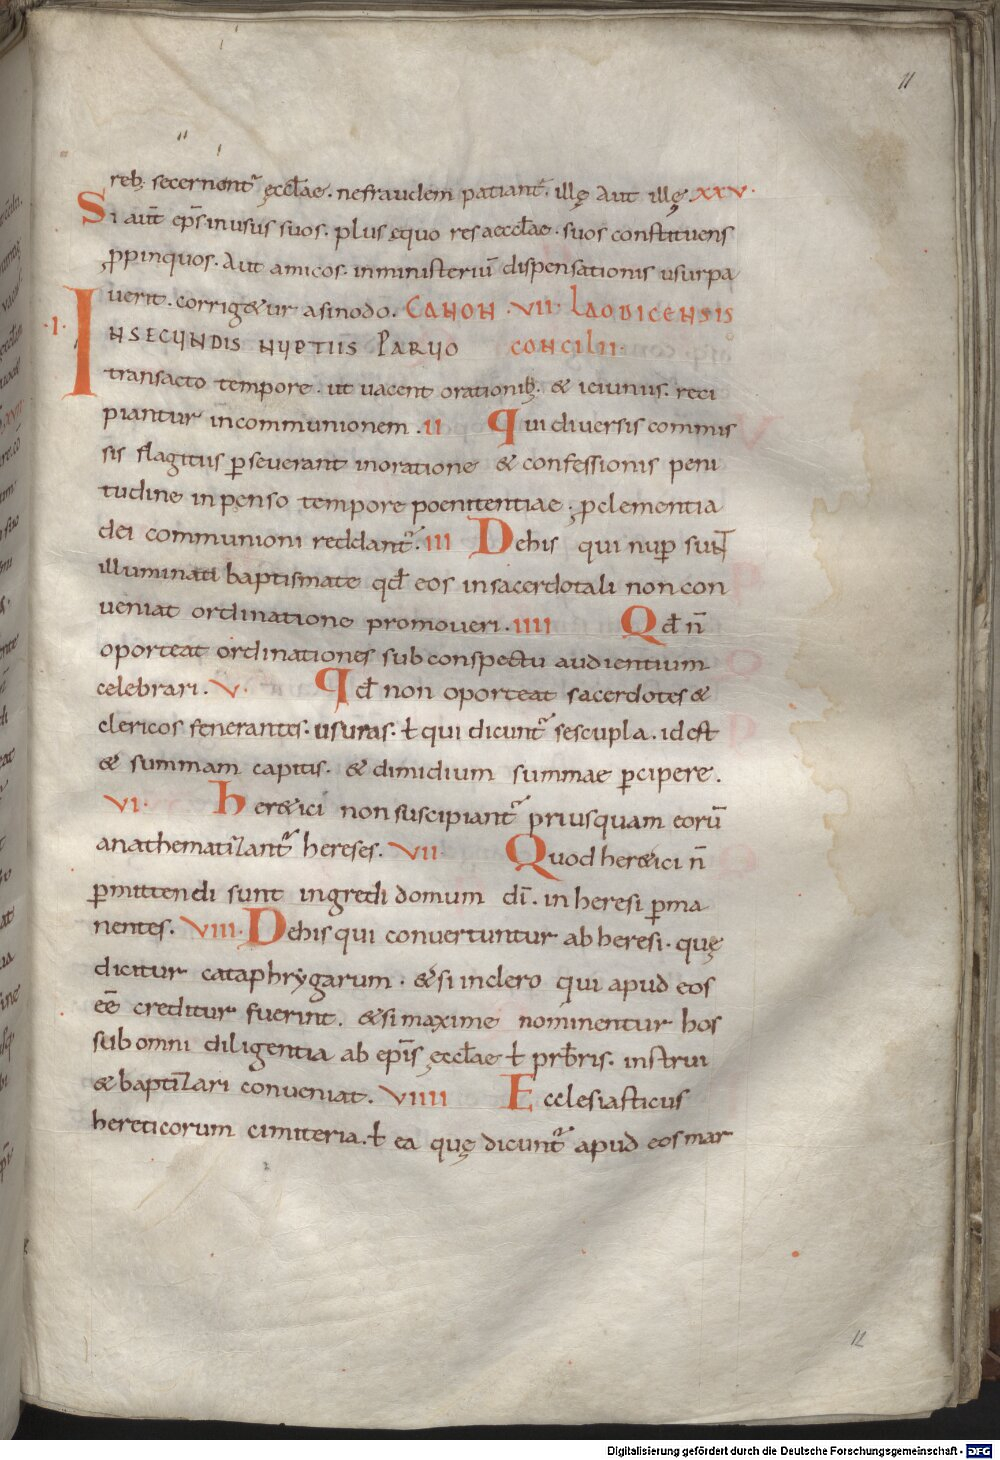 11
reb; secernent᷑ ęccłae. nefraudem patiant᷑. illę Aut illę. XXV.
Si aut̄ ep̄s inusus suos. plus ęquo res aeccłae. suos constituens
ꝓpinquos. Aut amicos. inministeriū dispensationis usurpa
uerit. corrig&ur asinodo. CANON. VII. LAODICENSIS
.I. INSECUNDIS NUPTIIS PARUO CONCILII.
transacto tempore. ut uacent orationib;. & ieiuniis. reci
piantur incommunionem. II Qui diuersis commis
sis flagitiis ꝑseuerant inoratione & confessionis peni
tudine inpenso tempore poenitentiae. ꝓclementia
dei communioni reddant᷑. III Dehis qui nuꝑ sunt
illuminati baptismate qđ eos insacerdotali non con
ueniat ordinatione promoueri. IIII Qđ n̄
oporteat ordinationes sub conspectu audientium
celebrari. V. Qđ non oporteat sacerdotes &
clericos fenerantes. usuras. ł qui dicunt᷑ sescupla. idest
& summam capitis. & dimidium summae ꝑcipere.
VI. Her&ici non suscipiant᷑ priusquam eorū
anathematizant᷑ hereses. VII. Quod her&ici n̄
ꝑmittendi sunt ingredi domum dī. in heresi ꝑma
nentes. VIII. Dehis qui conuertuntur ab heresi. quę
dicitur cataphrygarum. &si inclero qui apud eos
eē creditur fuerint. &si maxime nominentur hos
sub omni diligentia ab ep̄is ęccłae ł prb̄ris. instrui
& baptizari conueniat. VIIII Ecclesiasticus
hereticorum cimiteria. ł ea quę dicunt᷑ apud eos mar
12
Digitalisierung gefördert durch die Deutsche Forschungsgemeinschaft - DFG